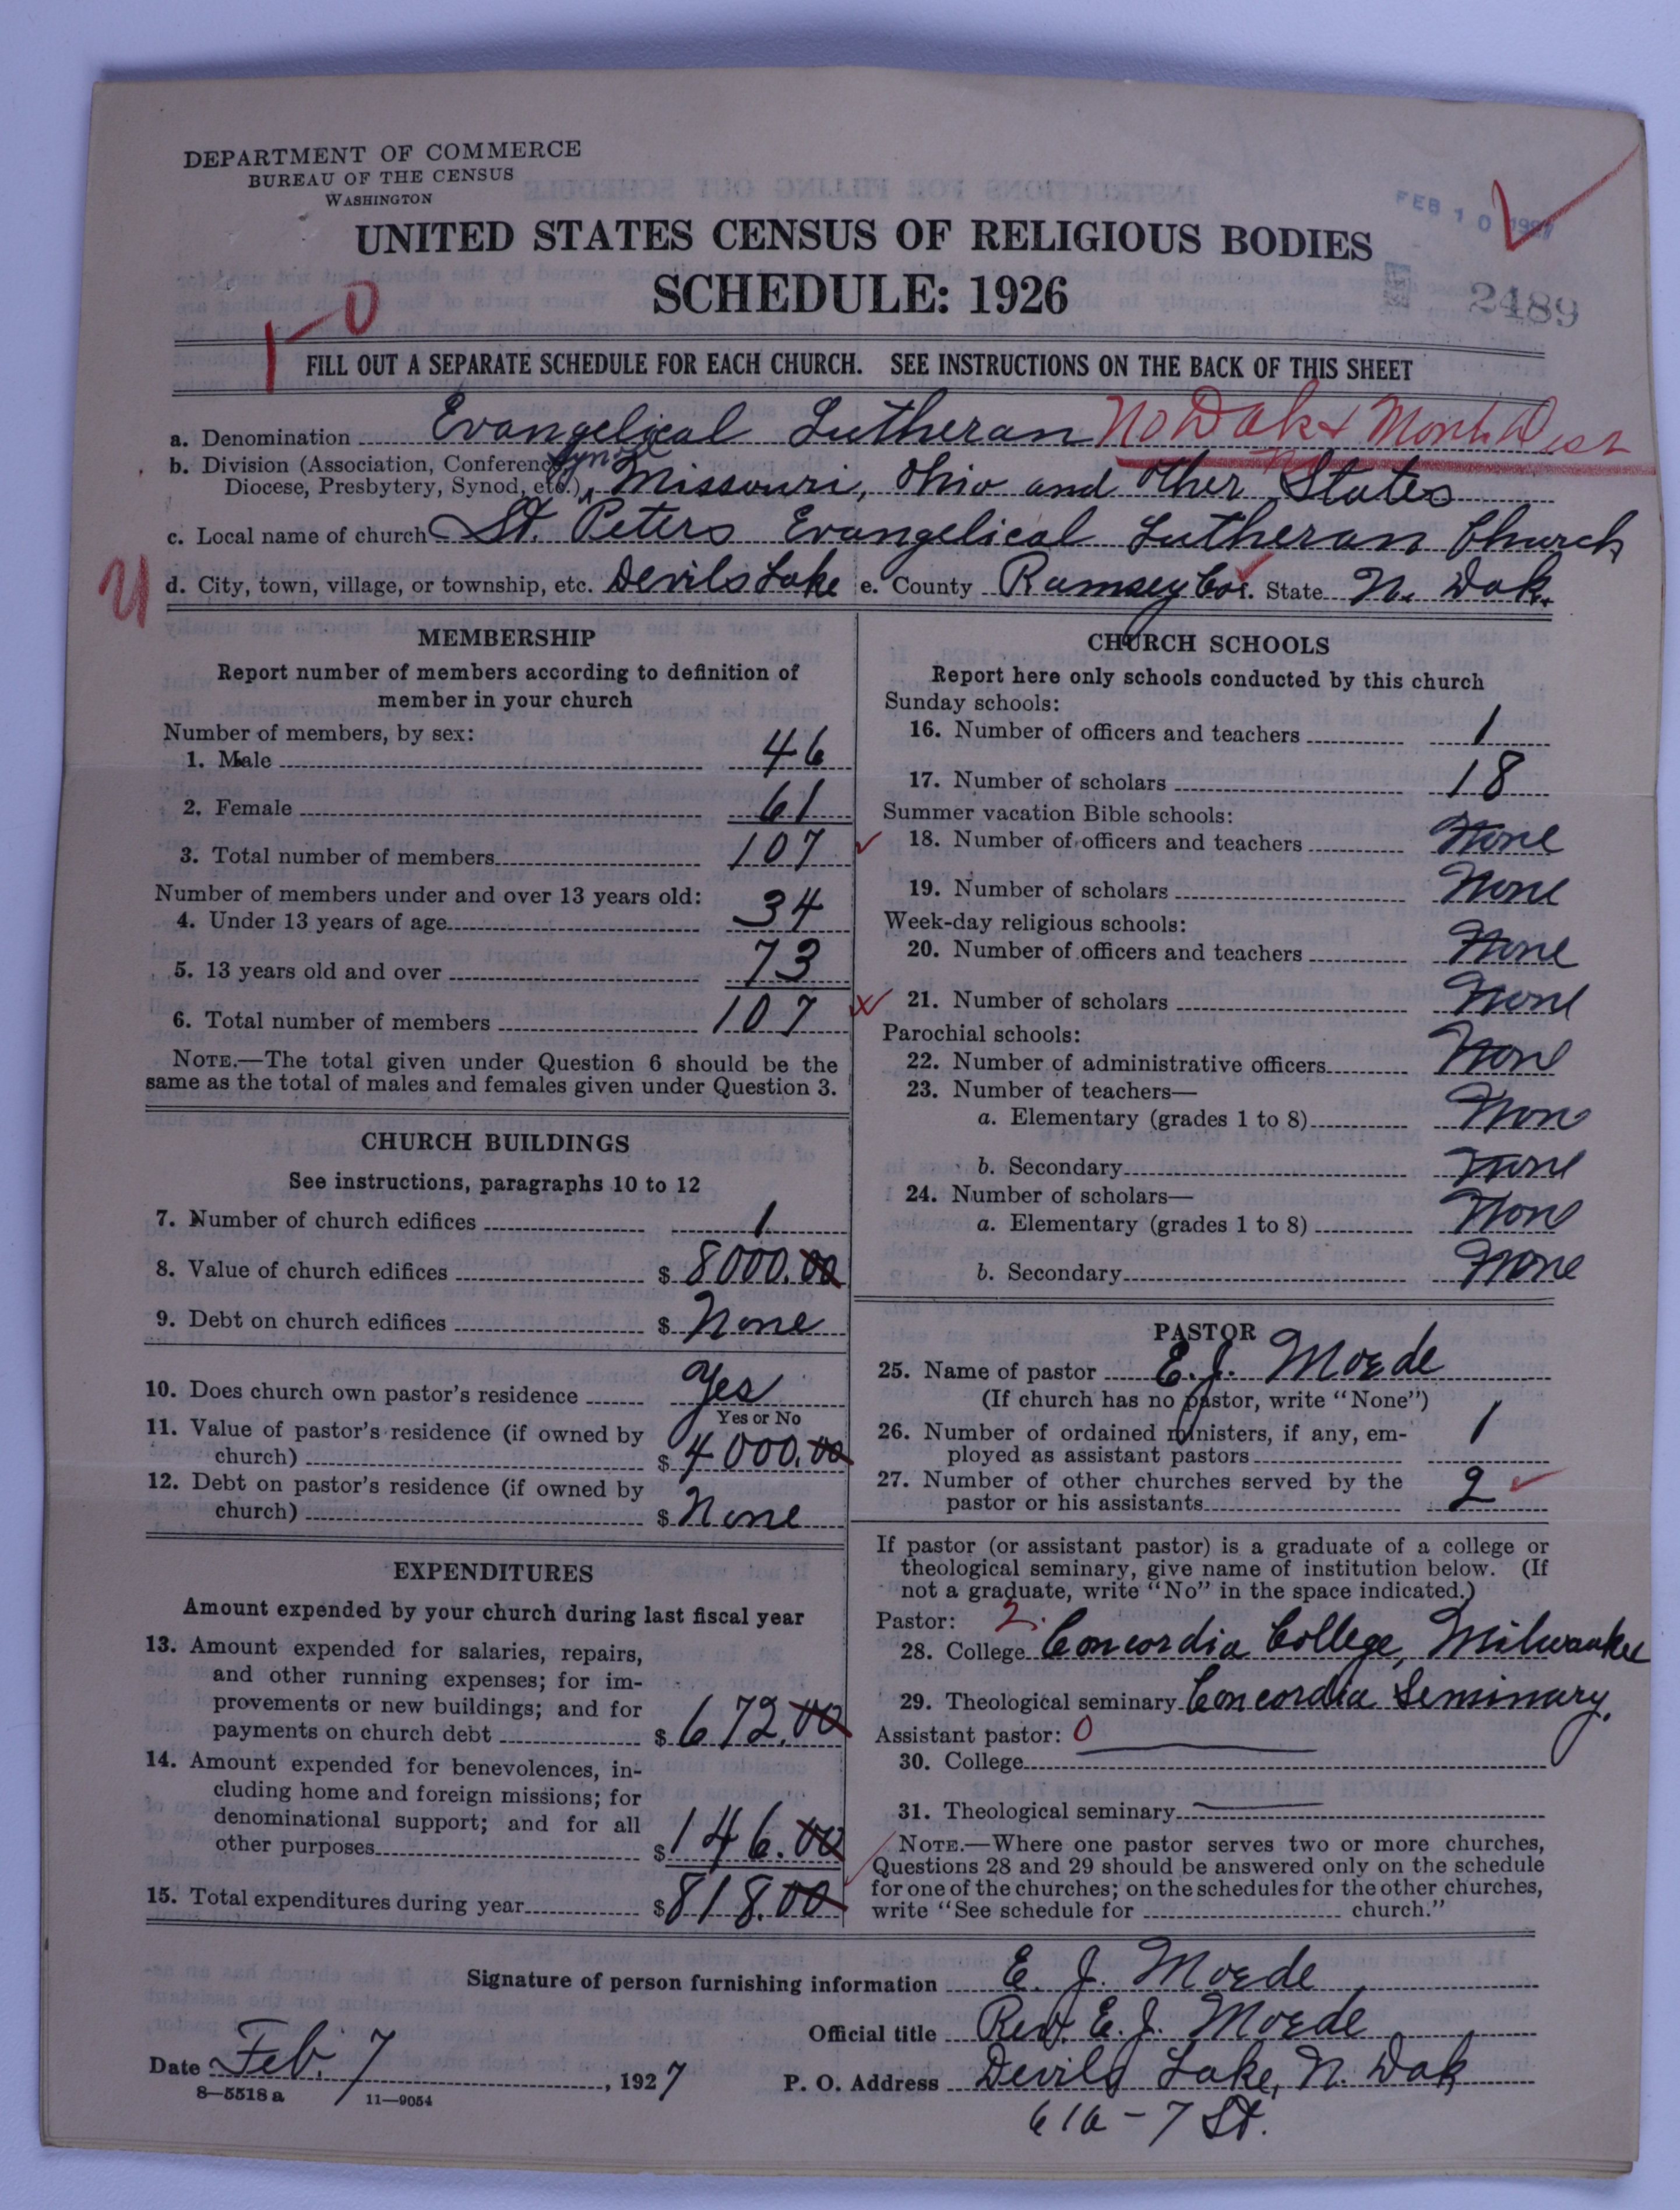 DEPARTMENT OF COMMERCE
BUREAU OF THE CENSUS
WASHINGTON
FEB 10 1927
UNITED STATES CENSUS OF RELIGIOUS BODIES
SCHEDULE: 1926
2489
1-0
FILL OUT A SEPARATE SCHEDULE FOR EACH CHURCH. SEE INSTRUCTIONS ON THE BACK OF THIS SHEET
a. Denomination Evangelical Lutheran No Dak & Mont. Dist
b. Division (Association, Conference, Synod
Diocese, Presbytery, Synod, etc.) Missouri, Ohio and Other States
c. Local name of church St. Peters Evangelical Lutheran Church
d. City, town, village, or township, etc. Devils Lake e. County Ramsey Co. State N. Dak.
MEMBERSHIP
Report number of members according to definition of
member in your church
Number of members, by sex:
1. Male 46
2. Female 61
3. Total number of members 107
Number of members under and over 13 years old:
4. Under 13 years of age 34
5. 13 years old and over 73
6. Total number of members 107
NOTE.—The total given under Question 6 should be the
same as the total of males and females given under Question 3.
CHURCH BUILDINGS
See instructions, paragraphs 10 to 12
7. Number of church edifices 1
8. Value of church edifices $ 8000.00
9. Debt on church edifices $ None
10. Does church own pastor's residence Yes
Yes or No
11. Value of pastor's residence (if owned by
church) $ 4000.00
12. Debt on pastor's residence (if owned by
church) $ None
EXPENDITURES
Amount expended by your church during last fiscal year
13. Amount expended for salaries, repairs,
and other running expenses; for im-
provements or new buildings; and for
payments on church debt $ 672.00
14. Amount expended for benevolences, in-
cluding home and foreign missions; for
denominational support; and for all
other purposes $ 146.00
15. Total expenditures during year $ 818.00
CHURCH SCHOOLS
Report here only schools conducted by this church
Sunday schools:
16. Number of officers and teachers 1
17. Number of scholars 18
Summer vacation Bible schools:
18. Number of officers and teachers None
19. Number of scholars None
Week-day religious schools:
20. Number of officers and teachers None
21. Number of scholars None
Parochial schools:
22. Number of administrative officers None
23. Number of teachers—
a. Elementary (grades 1 to 8) None
b. Secondary None
24. Number of scholars—
a. Elementary (grades 1 to 8) None
b. Secondary None
PASTOR
25. Name of pastor E. J. Moede
(If church has no pastor, write "None")
26. Number of ordained ministers, if any, em-
ployed as assistant pastors 1
27. Number of other churches served by the
pastor or his assistants 2
If pastor (or assistant pastor) is a graduate of a college or
theological seminary, give name of institution below. (If
not a graduate, write "No" in the space indicated.)
Pastor: 2.
28. College Concordia College, Milwaukee
29. Theological seminary Concordia Seminary.
Assistant pastor: 0
30. College
31. Theological seminary
NOTE.—Where one pastor serves two or more churches,
Questions 28 and 29 should be answered only on the schedule
for one of the churches; on the schedules for the other churches,
write "See schedule for church."
Signature of person furnishing information E. J. Moede
Official title Rev. E. J. Moede
Date Feb. 7, 1927
P. O. Address Devils Lake, N. Dak
616 - 7 St.
8—5518 a 11—9054